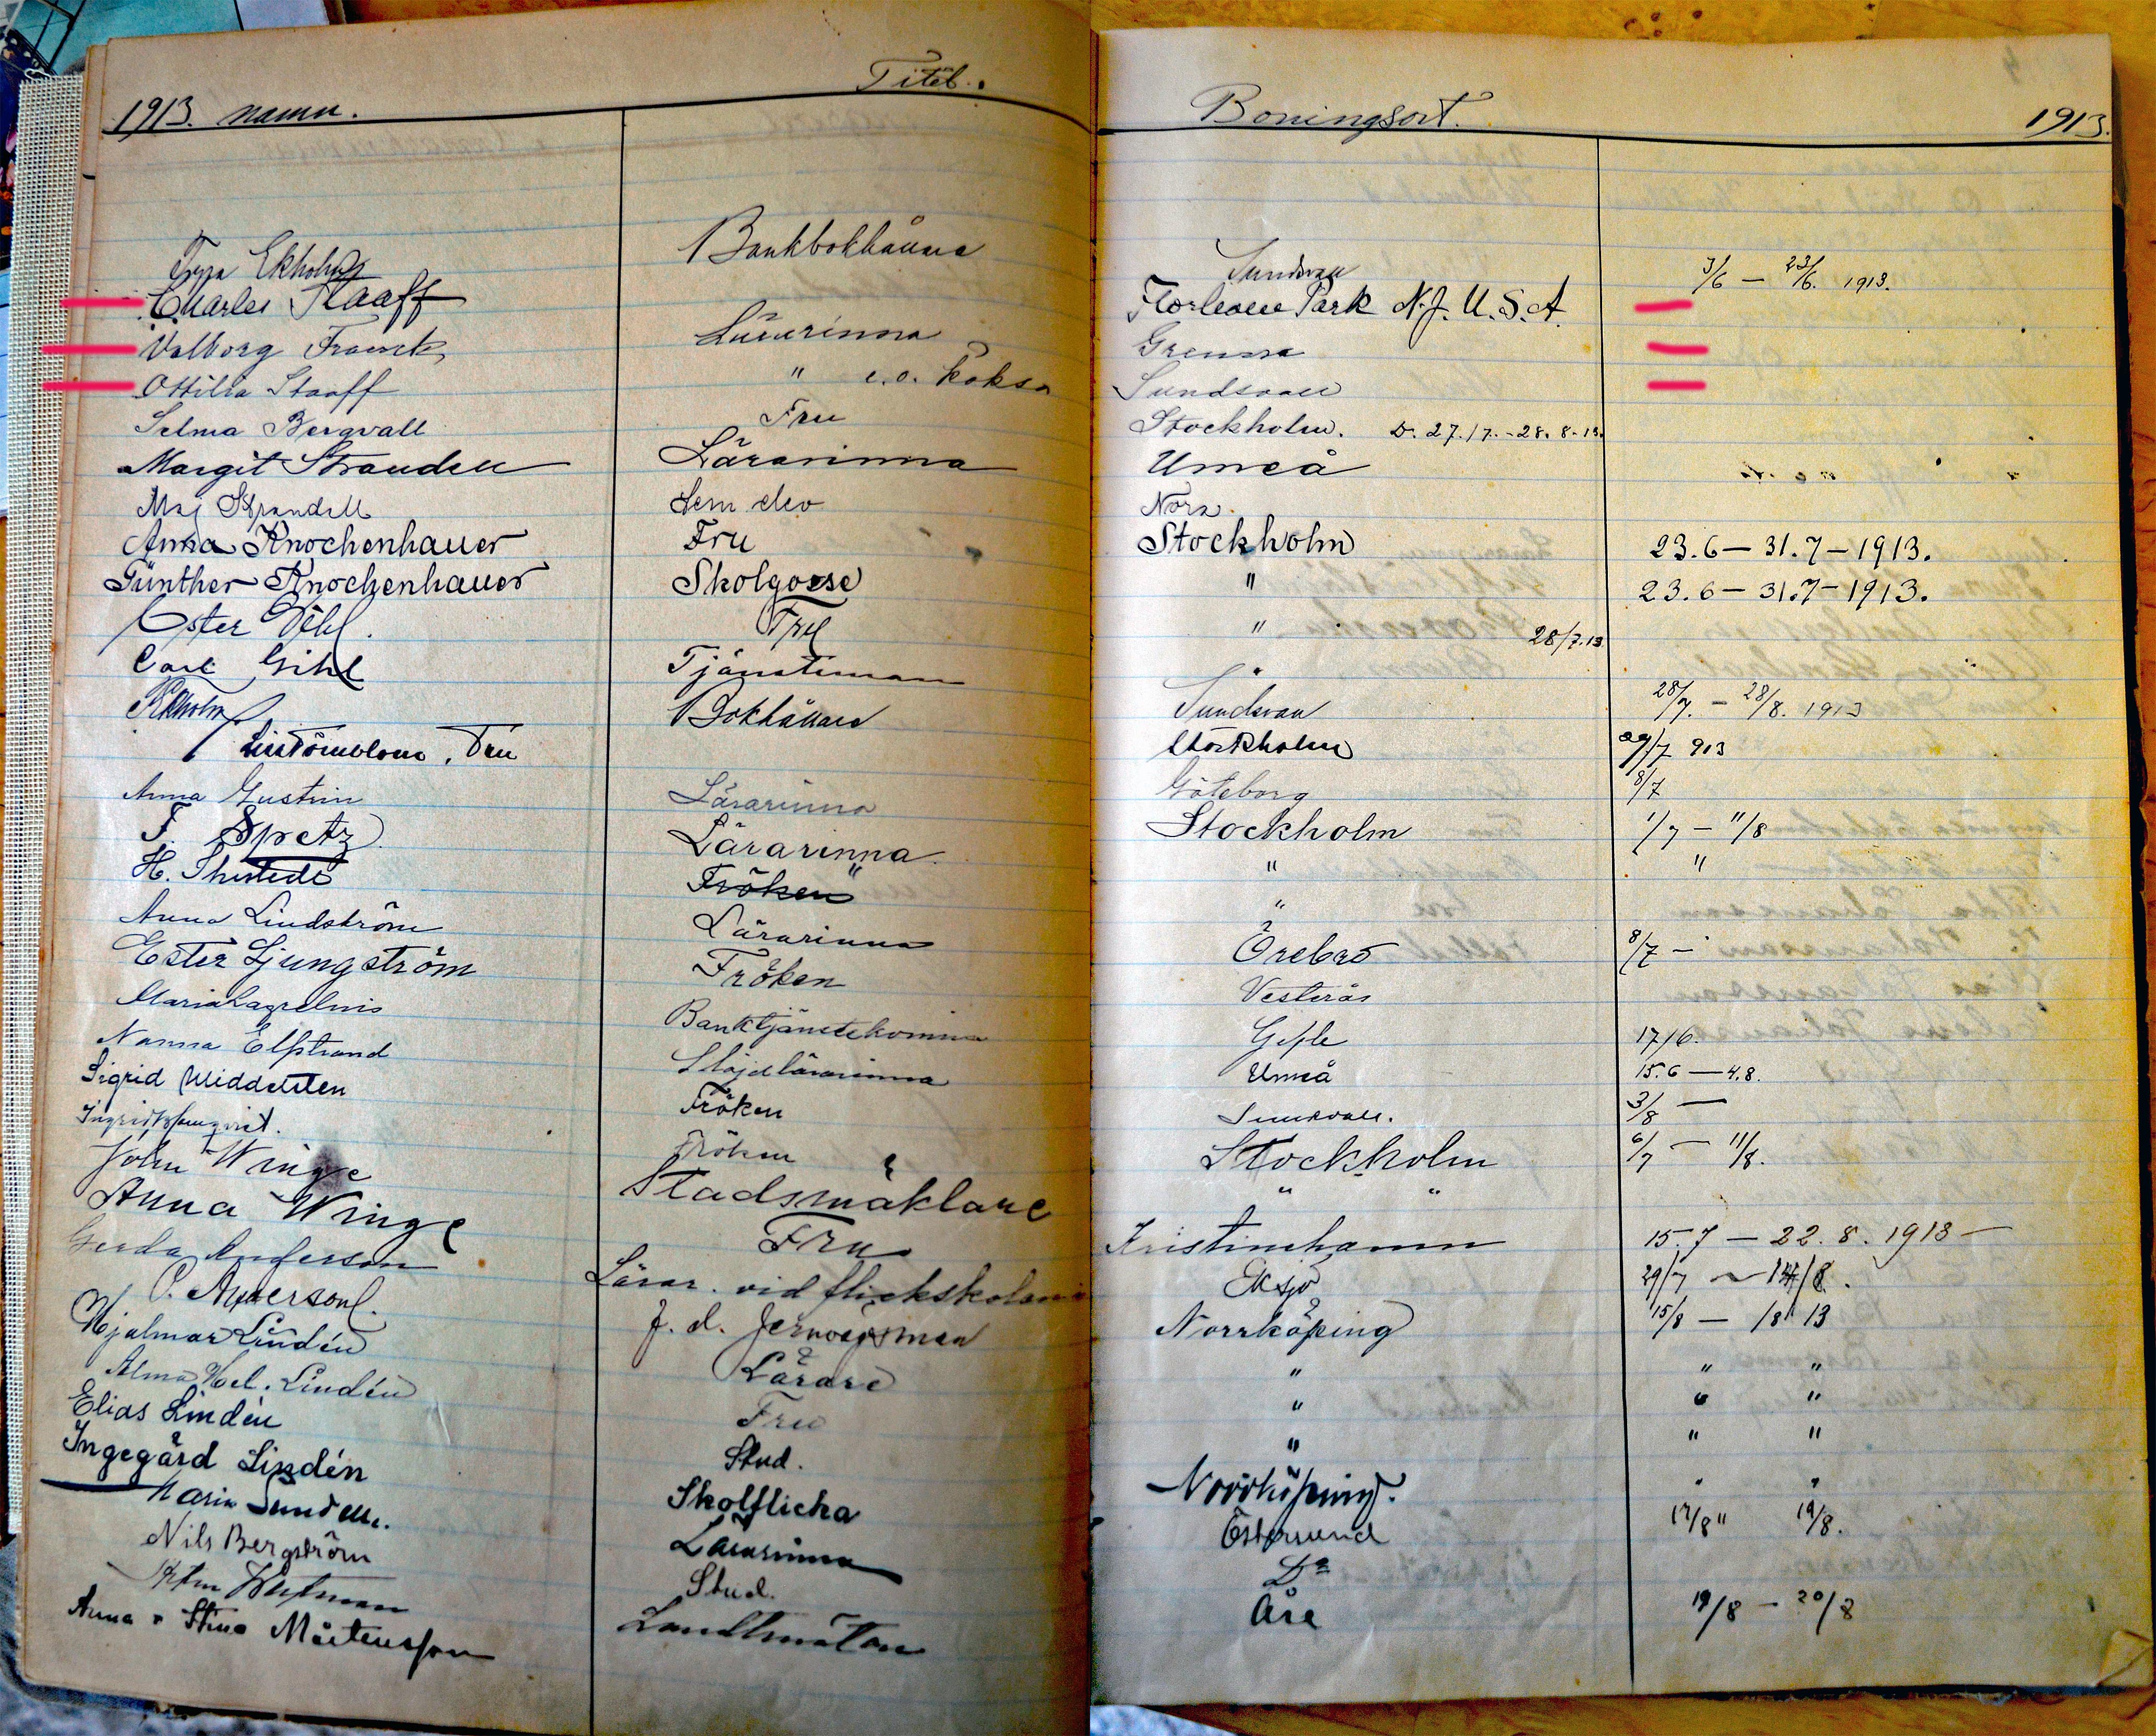 1913. namn. Titel. Boningsort. 1913.
Ekholm Bankbokhållare Sundsvall 3/6 — 23/6. 1913.
Charles Staaff Florham Park N.J. U.S.A.
Valborg Franck Lärarinna Grenna
Ottilia Staaff " e.o. Sundsvall
Selma Bergvall Fru Stockholm. D. 27./7.-28.8-13.
Margit Strandell Lärarinna Umeå
Maj Strandell Sem. elev Nora
Anna Knochenhauer Fru Stockholm 23.6 — 31.7 — 1913.
Günther Knochenhauer Skolgosse " 23.6 — 31.7 — 1913.
Ester Gihl. Fru " 28/7.13
Carl Gihl Tjänsteman "
Ekholm Bokhållare Sundsvall 28/7. — 28/8. 1913
Fru Stockholm 29/7 913
Anna Gustrin Lärarinna Göteborg 8/7
F. Spetz Lärarinna Stockholm 1/7 — 11/8
H. Fröken " " "
Anna Lindström Lärarinna "
Ester Ljungström Fröken Örebro 8/7 —
Maria Lagrelius Banktjänstekvinna Vesterås
Nanna Elfstrand Slöjdlärarinna Gefle 17/6.
Sigrid Widdersten Fröken Umeå 15.6 — 4.8.
Fröken 3/8 —
John Winge Stadsmäklare Stockholm 6/7 — 11/8.
Anna Winge Fru " "
Gerda Anderson Lärar. vid flickskolan Kristinehamn 15.7 — 22.8. 1913 —
O. Anderson. f. d. Eksjö 29/7 ~ 14/8.
Hjalmar Lindén Lärare Norrköping 15/8 — 18 13
Alma Hel. Lindén Fru " " "
Elias Lindén Stud. " " "
Ingegärd Lindén Skolflicka " " "
Lärarinna Norrköping. " "
Nils Bergström Stud. Östersund 17/8 " 19/8.
Landtmätare Do
Anna o Stina Mårtensson Åre 19/8 — 20/8